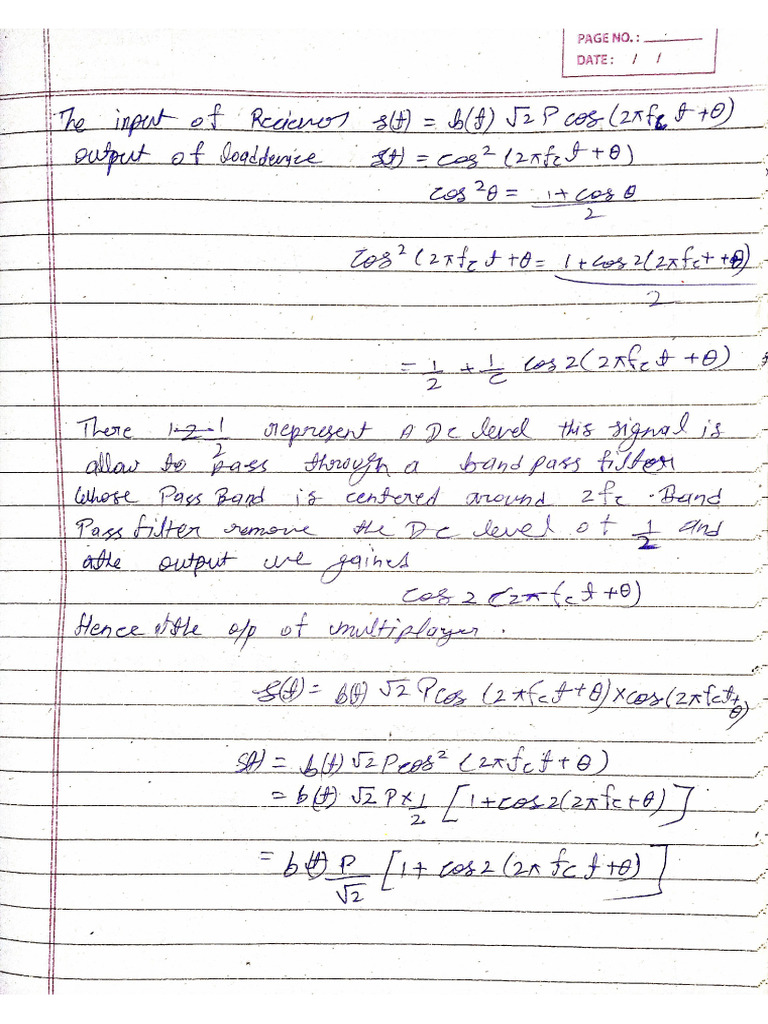 PAGE NO. :
DATE : / /
The input of Reciever s(t) = b(t) √2 P cos (2πfc t + θ)
output of s(t) = cos² (2πfct + θ)
cos²θ = 1 + cos θ / 2
cos² (2πfc t + θ = 1 + cos 2(2πfct + θ) / 2
= 1/2 + 1/2 cos 2 (2πfc t + θ)
There 1/2 represent A DC level this signal is
allow to pass through a band pass filter
whose Pass Band is centered around 2fc . Band
Pass filter remove the DC level of 1/2 and
the output we gained
cos 2 (2πfct + θ)
Hence the o/p of multiplayer .
s(t) = b(t) √2 P cos (2πfct + θ) x cos (2πfct + θ)
s(t) = b(t) √2 P cos² (2πfct + θ)
= b(t) √2 P x 1/2 [1 + cos 2(2πfc + θ)]
= b(t) P/√2 [1 + cos 2 (2π fc t + θ)]